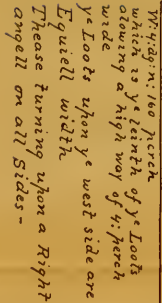 W:4:dg:n: 160 perch
which is yᵉ leinth of yᵉ Loots
alowing a high way of 4: perch
wide
yᵉ Loots upon yᵉ west side are
Equiell width
Thease turning upon a Right
angell on all Sides -